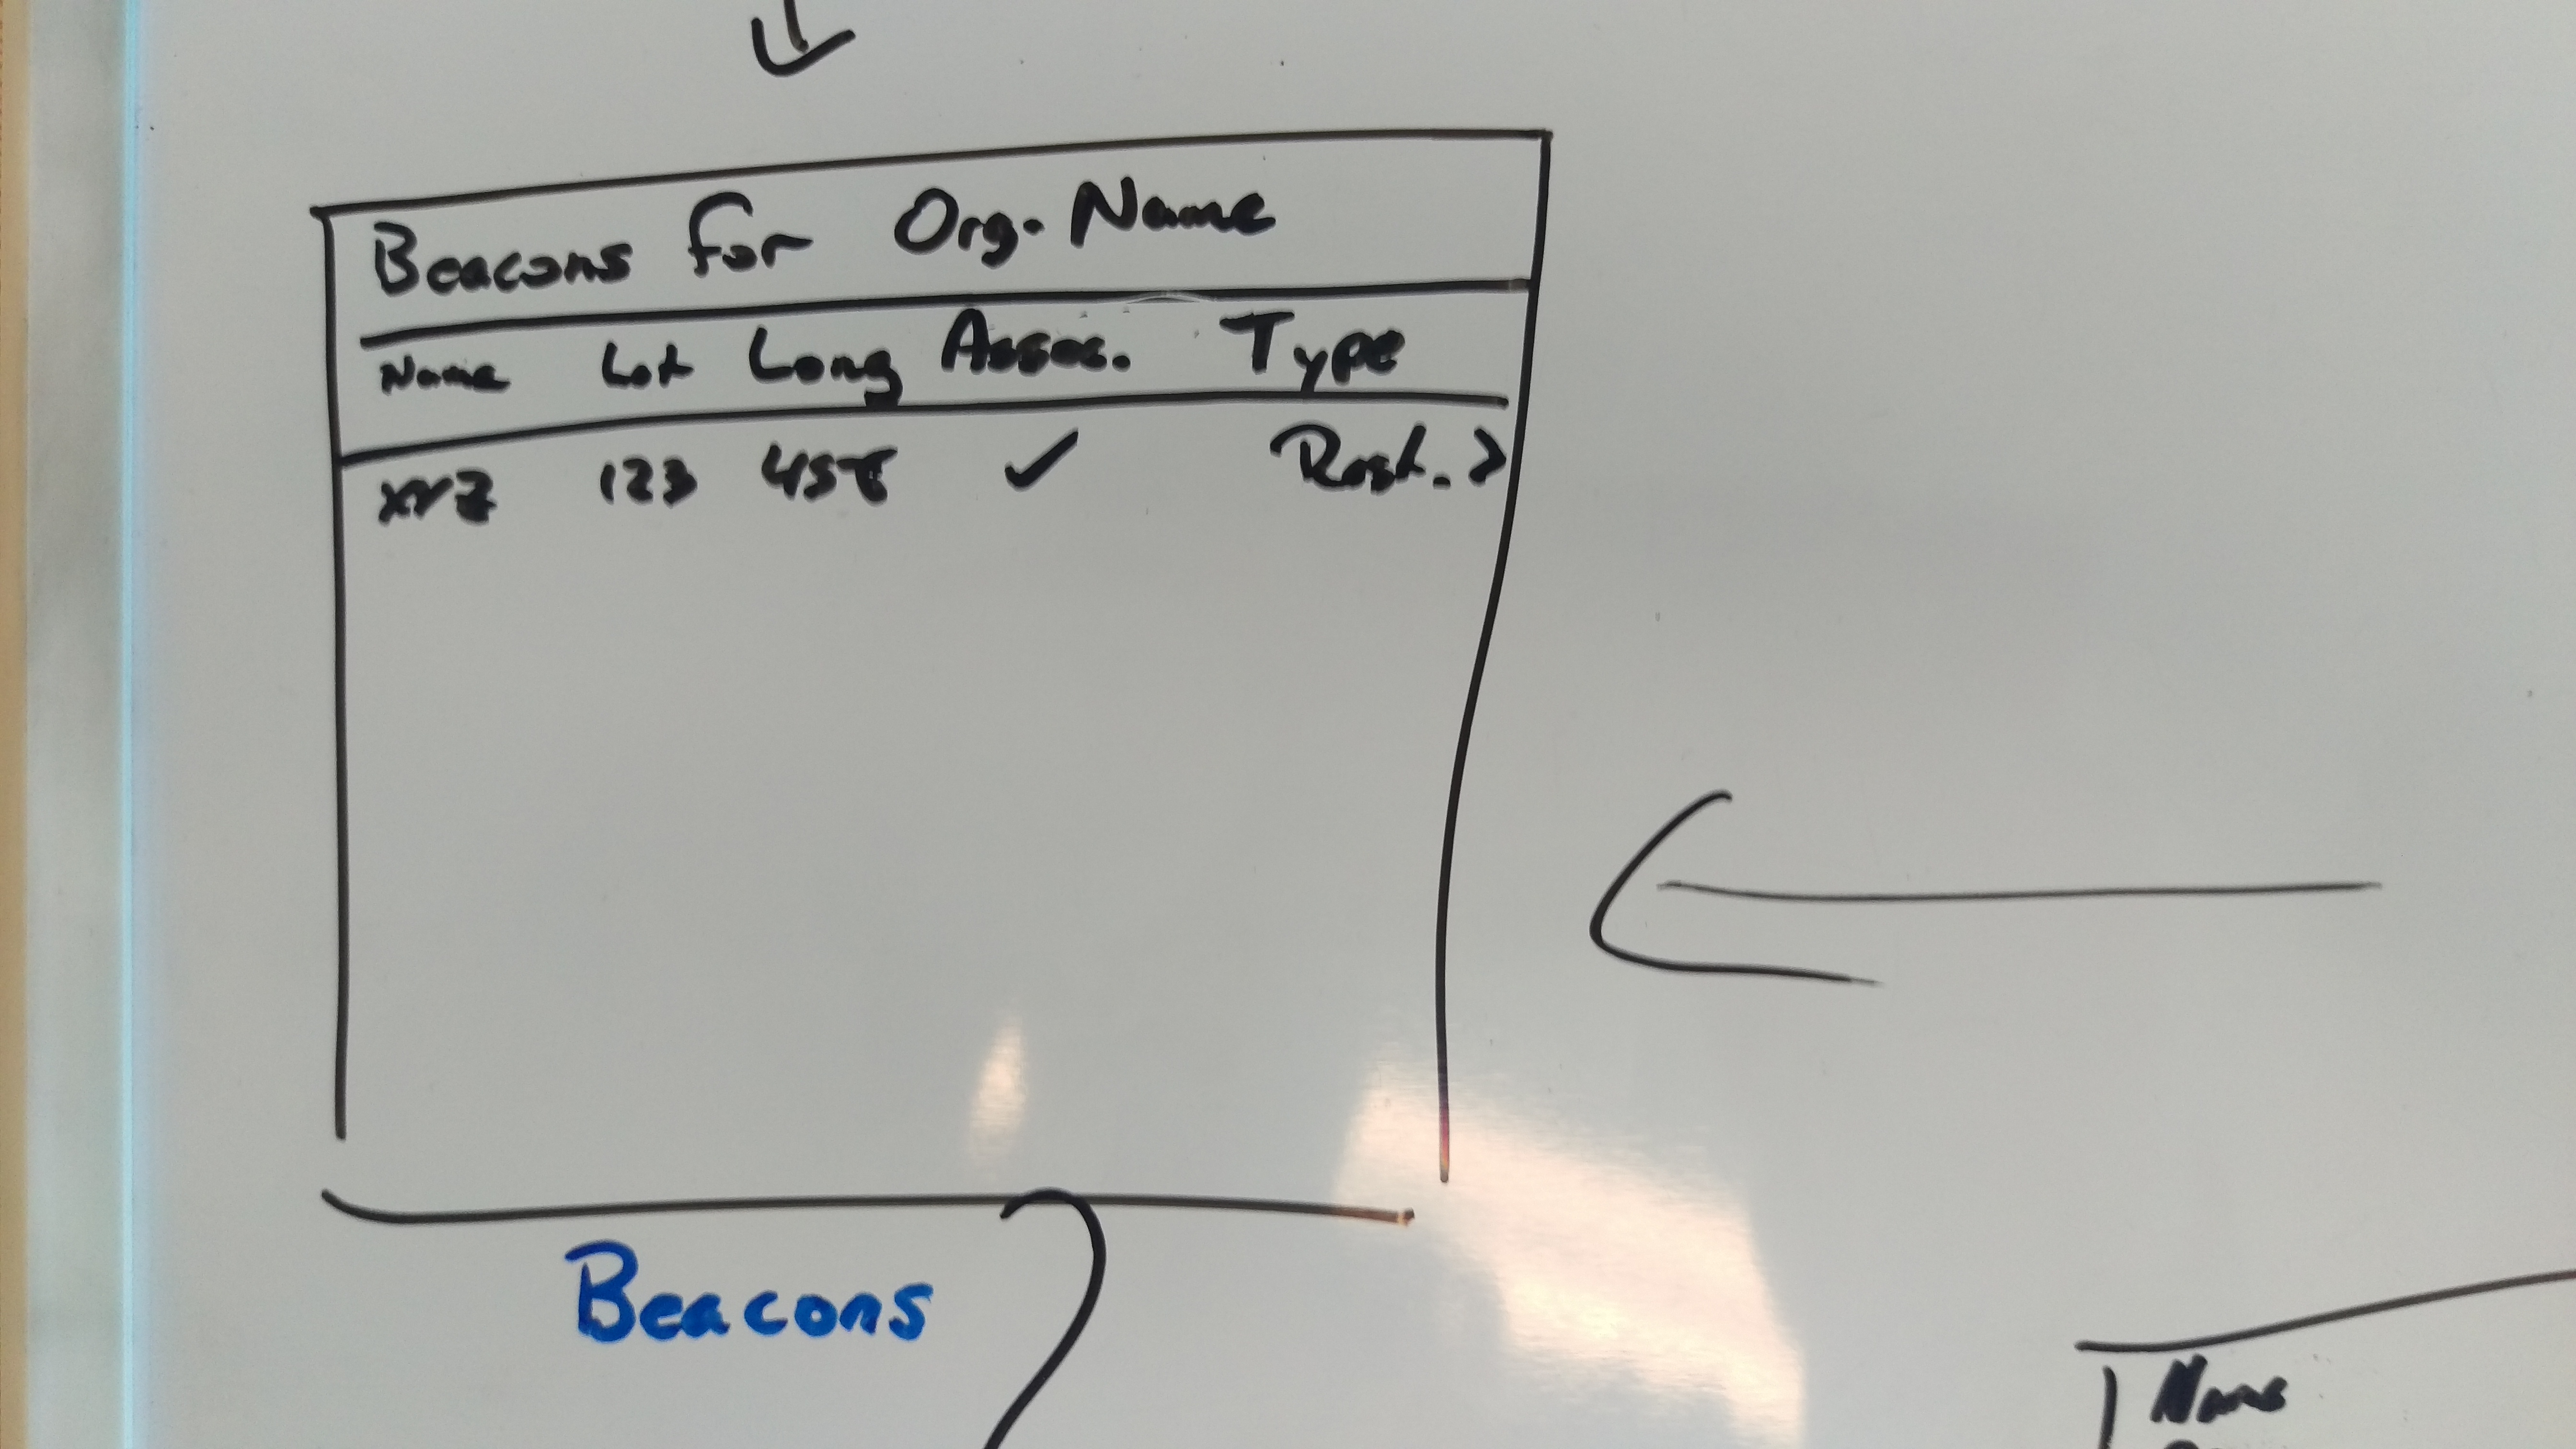 Beacons for Org. Name
Name Lat Long Assoc. Type
XYZ 123 456 ✓ Rest. >
Beacons
Name